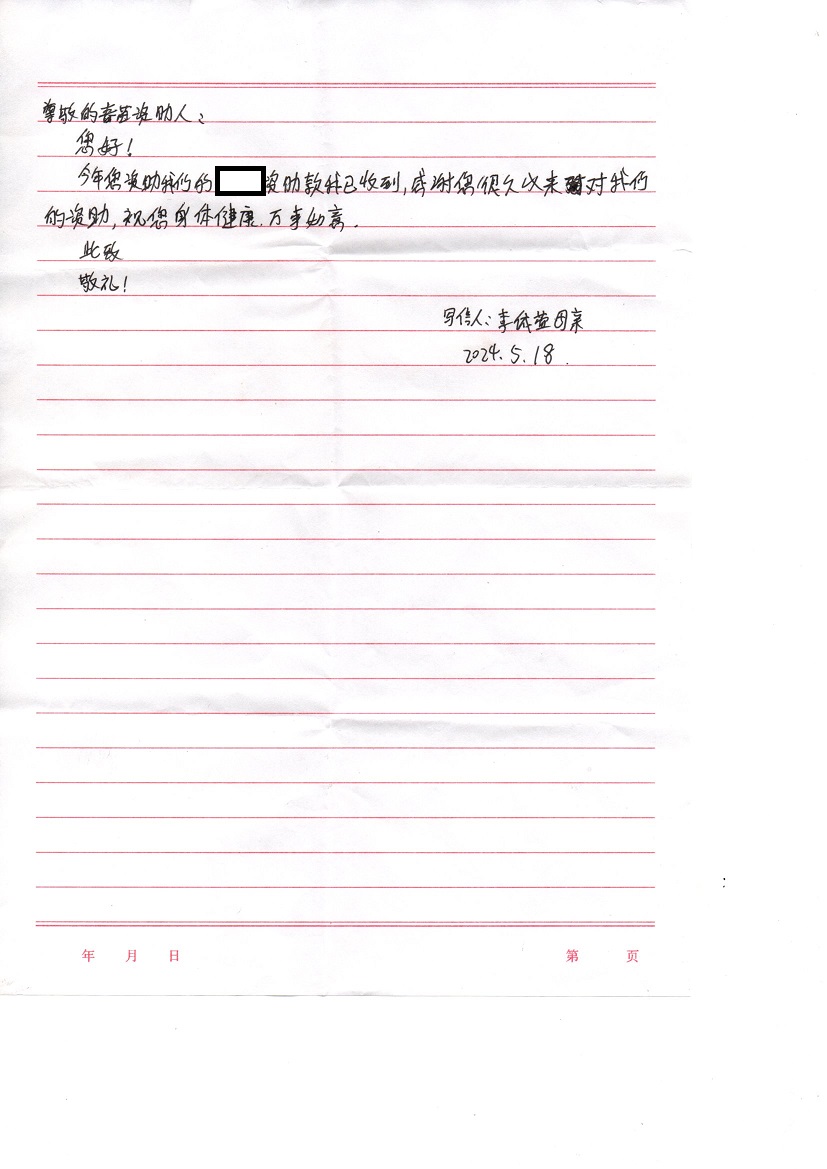 尊敬的春蕾资助人：
您好！
今年您资助我们的资助款我已收到,感谢您很久以来对我们
的资助,祝您身体健康.万事如意.
此致
敬礼！
写信人:李依萱母亲
2024.5.18.
年 月 日 第 页